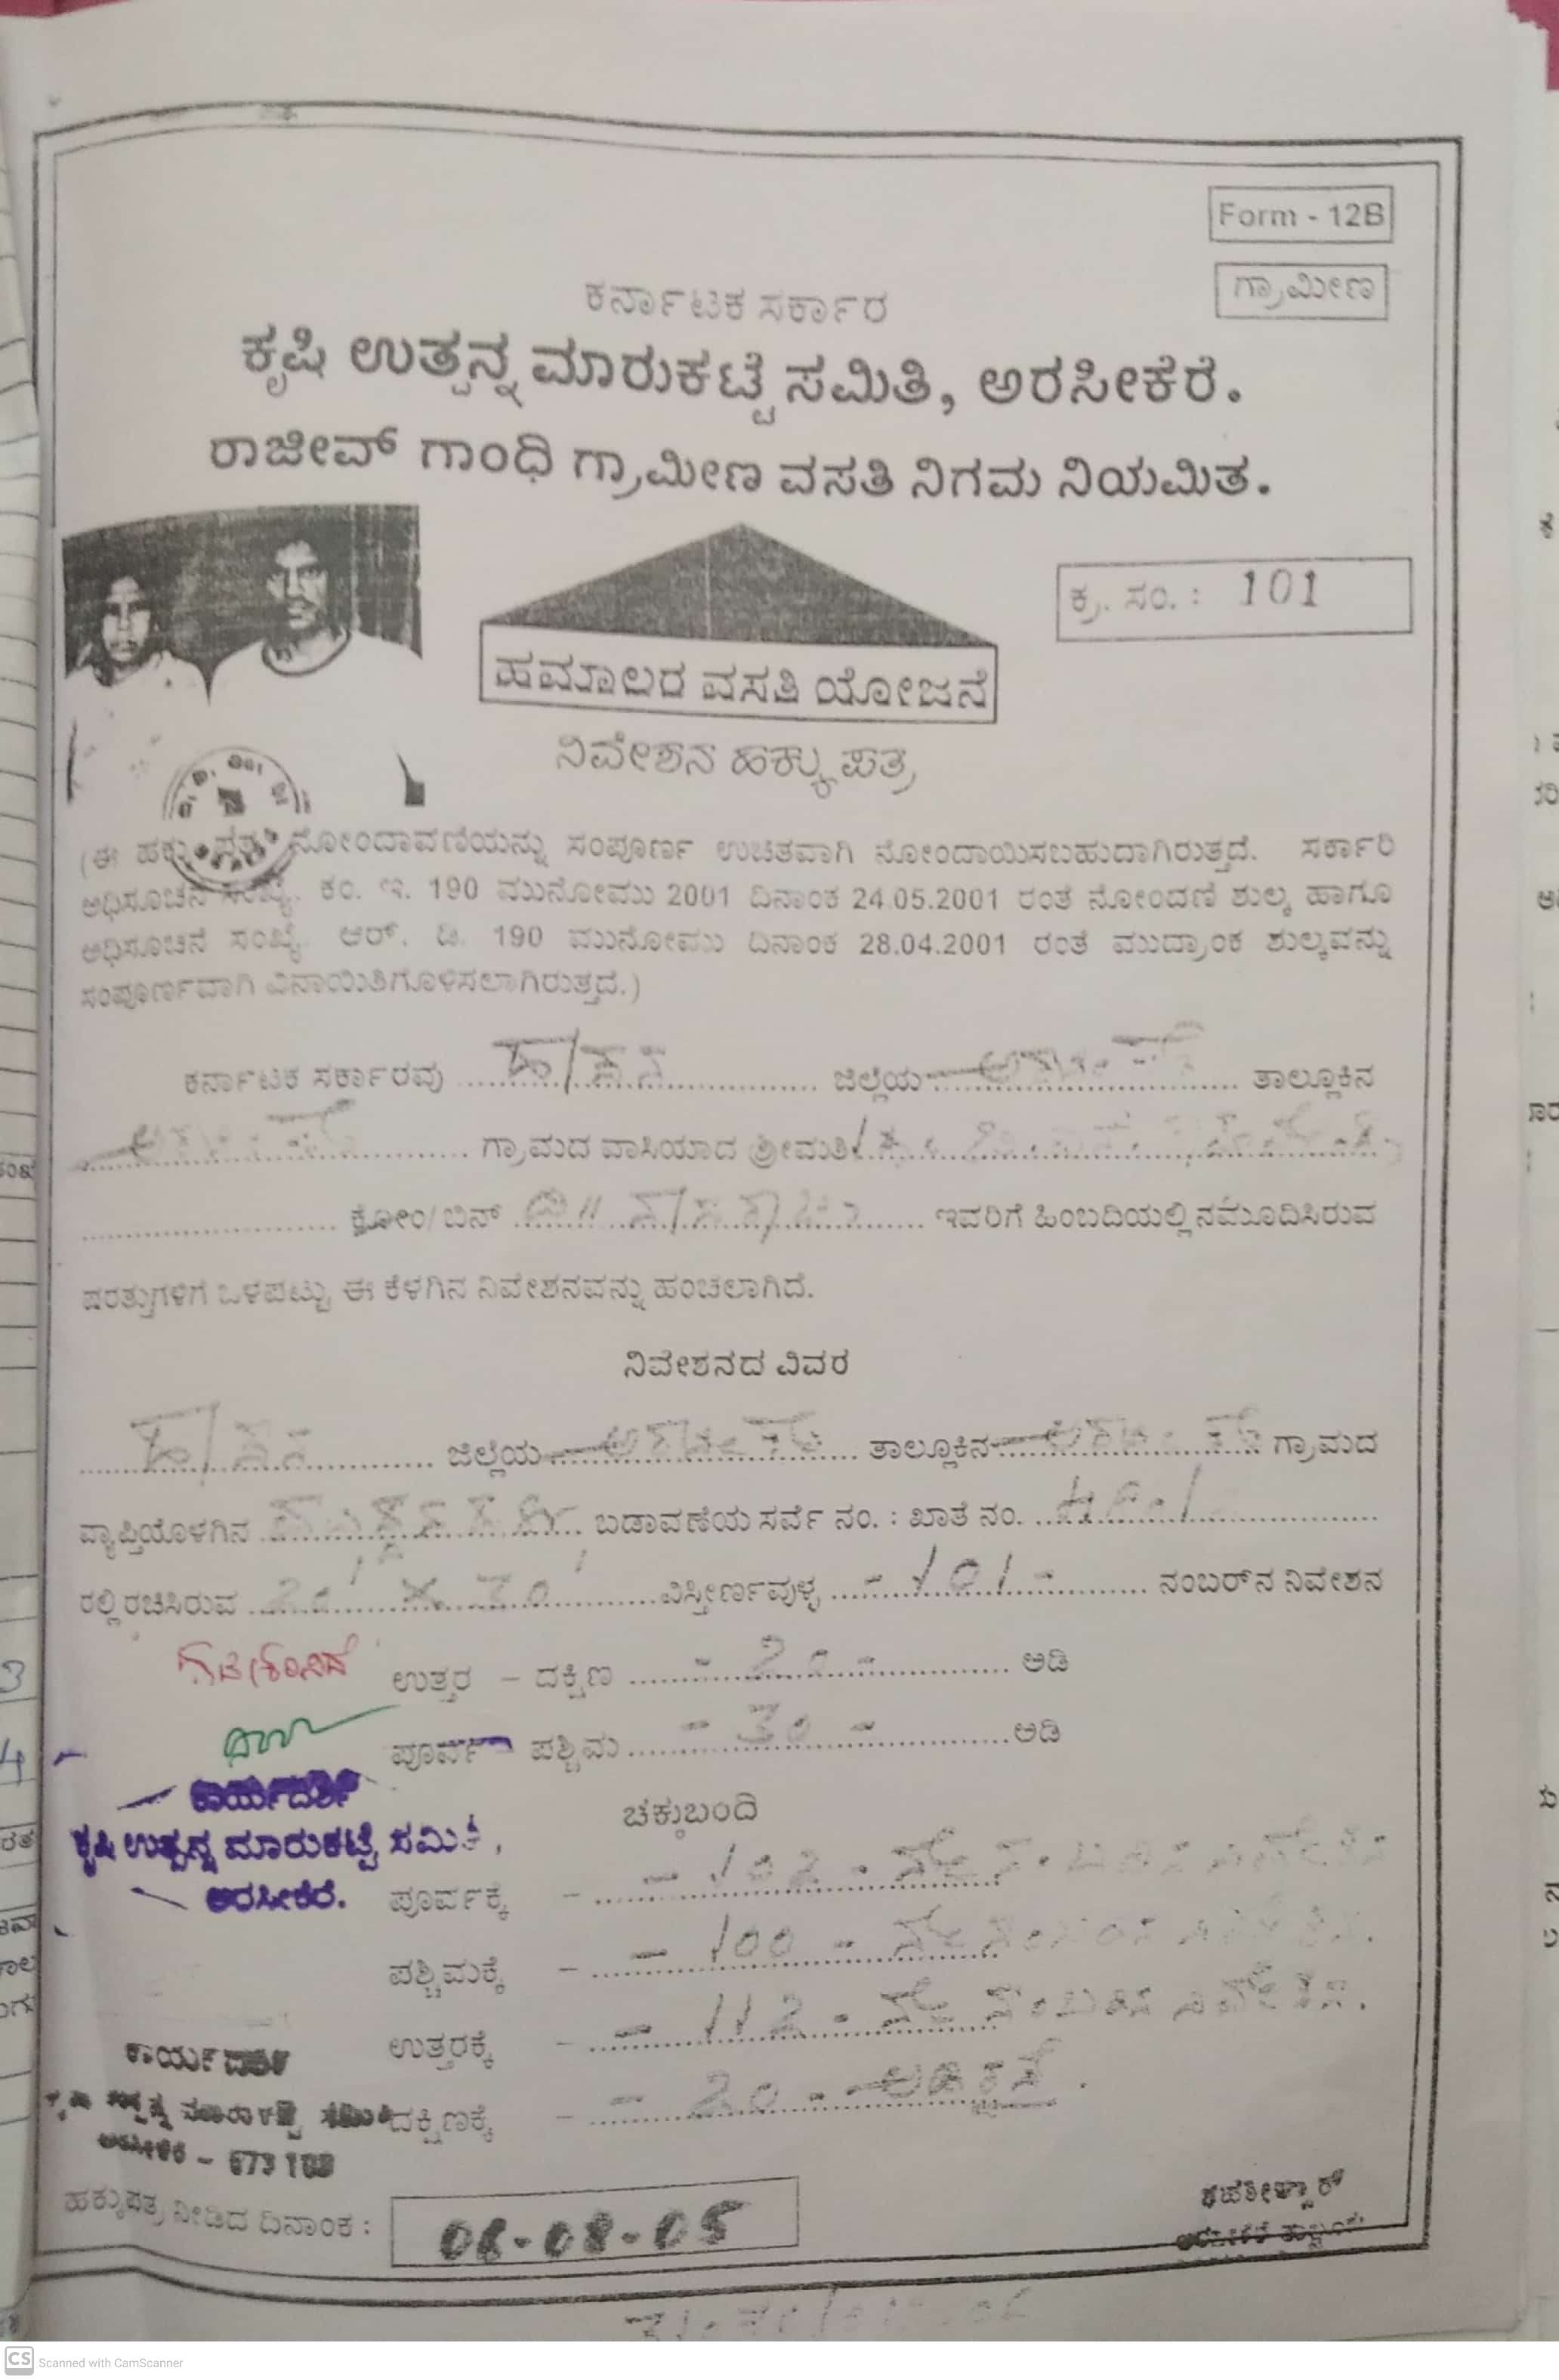 Form - 12B
ಗ್ರಾಮೀಣ
ಕರ್ನಾಟಕ ಸರ್ಕಾರ
ಕೃಷಿ ಉತ್ಪನ್ನ ಮಾರುಕಟ್ಟೆ ಸಮಿತಿ, ಅರಸೀಕೆರೆ.
ರಾಜೀವ್ ಗಾಂಧಿ ಗ್ರಾಮೀಣ ವಸತಿ ನಿಗಮ ನಿಯಮಿತ.
ಕ್ರ. ಸಂ. : 101
ಹಮಾಲರ ವಸತಿ ಯೋಜನೆ
ನಿವೇಶನ ಹಕ್ಕು ಪತ್ರ
(ಈ ಹಕ್ಕು ಪತ್ರ ನೋಂದಾವಣೆಯನ್ನು ಸಂಪೂರ್ಣ ಉಚಿತವಾಗಿ ನೋಂದಾಯಿಸಬಹುದಾಗಿರುತ್ತದೆ. ಸರ್ಕಾರಿ
ಅಧಿಸೂಚನೆ ಸಂಖ್ಯೆ. ಕಂ. ಇ. 190 ಮುನೋಮು 2001 ದಿನಾಂಕ 24.05.2001 ರಂತೆ ನೋಂದಣಿ ಶುಲ್ಕ ಹಾಗೂ
ಅಧಿಸೂಚನೆ ಸಂಖ್ಯೆ. ಆರ್. ಡಿ. 190 ಮುನೋಮು ದಿನಾಂಕ 28.04.2001 ರಂತೆ ಮುದ್ರಾಂಕ ಶುಲ್ಕವನ್ನು
ಸಂಪೂರ್ಣವಾಗಿ ವಿನಾಯಿತಿಗೊಳಿಸಲಾಗಿರುತ್ತದೆ.)
ಕರ್ನಾಟಕ ಸರ್ಕಾರವು ಹಾಸನ ಜಿಲ್ಲೆಯ ಅರಸೀಕೆರೆ ತಾಲ್ಲೂಕಿನ
ಅರಸೀಕೆರೆ ಗ್ರಾಮದ ವಾಸಿಯಾದ ಶ್ರೀಮತಿ/
ಕೋಂ/ ಬಿನ್ ಇವರಿಗೆ ಹಿಂಬದಿಯಲ್ಲಿ ನಮೂದಿಸಿರುವ
ಷರತ್ತುಗಳಿಗೆ ಒಳಪಟ್ಟು ಈ ಕೆಳಗಿನ ನಿವೇಶನವನ್ನು ಹಂಚಲಾಗಿದೆ.
ನಿವೇಶನದ ವಿವರ
ಹಾಸನ ಜಿಲ್ಲೆಯ ಅರಸೀಕೆರೆ ತಾಲ್ಲೂಕಿನ ಅರಸೀಕೆರೆ ಗ್ರಾಮದ
ವ್ಯಾಪ್ತಿಯೊಳಗಿನ ಬಡಾವಣೆಯ ಸರ್ವೆ ನಂ. : ಖಾತೆ ನಂ.
ರಲ್ಲಿ ರಚಿಸಿರುವ 20' X 30' ವಿಸ್ತೀರ್ಣವುಳ್ಳ - 101 - ನಂಬರ್‌ನ ನಿವೇಶನ
ಉತ್ತರ - ದಕ್ಷಿಣ - 20 - ಅಡಿ
ಪೂರ್ವ - ಪಶ್ಚಿಮ - 30 - ಅಡಿ
ಕಾರ್ಯದರ್ಶಿ
ಚಕ್ಕುಬಂದಿ
ಕೃಷಿ ಉತ್ಪನ್ನ ಮಾರುಕಟ್ಟೆ ಸಮಿತಿ,
ಅರಸೀಕೆರೆ.
ಪೂರ್ವಕ್ಕೆ - - 102 - ನೇ ನಂಬರಿನ ನಿವೇಶನ
ಪಶ್ಚಿಮಕ್ಕೆ - - 100 - ನೇ ನಂಬರಿನ ನಿವೇಶನ.
ಉತ್ತರಕ್ಕೆ - - 112 - ನೇ ನಂಬರಿನ ನಿವೇಶನ.
ದಕ್ಷಿಣಕ್ಕೆ - - 20 - ಅಡಿ ರಸ್ತೆ.
ಕಾರ್ಯದರ್ಶಿ
ಕೃಷಿ ಉತ್ಪನ್ನ ಮಾರುಕಟ್ಟೆ ಸಮಿತಿ
ಅರಸೀಕೆರೆ - 573 103
ಹಕ್ಕುಪತ್ರ ನೀಡಿದ ದಿನಾಂಕ : 06-08-05
ತಹಶೀಲ್ದಾರ್
ಅರಸೀಕೆರೆ ತಾಲ್ಲೂಕು
CS Scanned with CamScanner